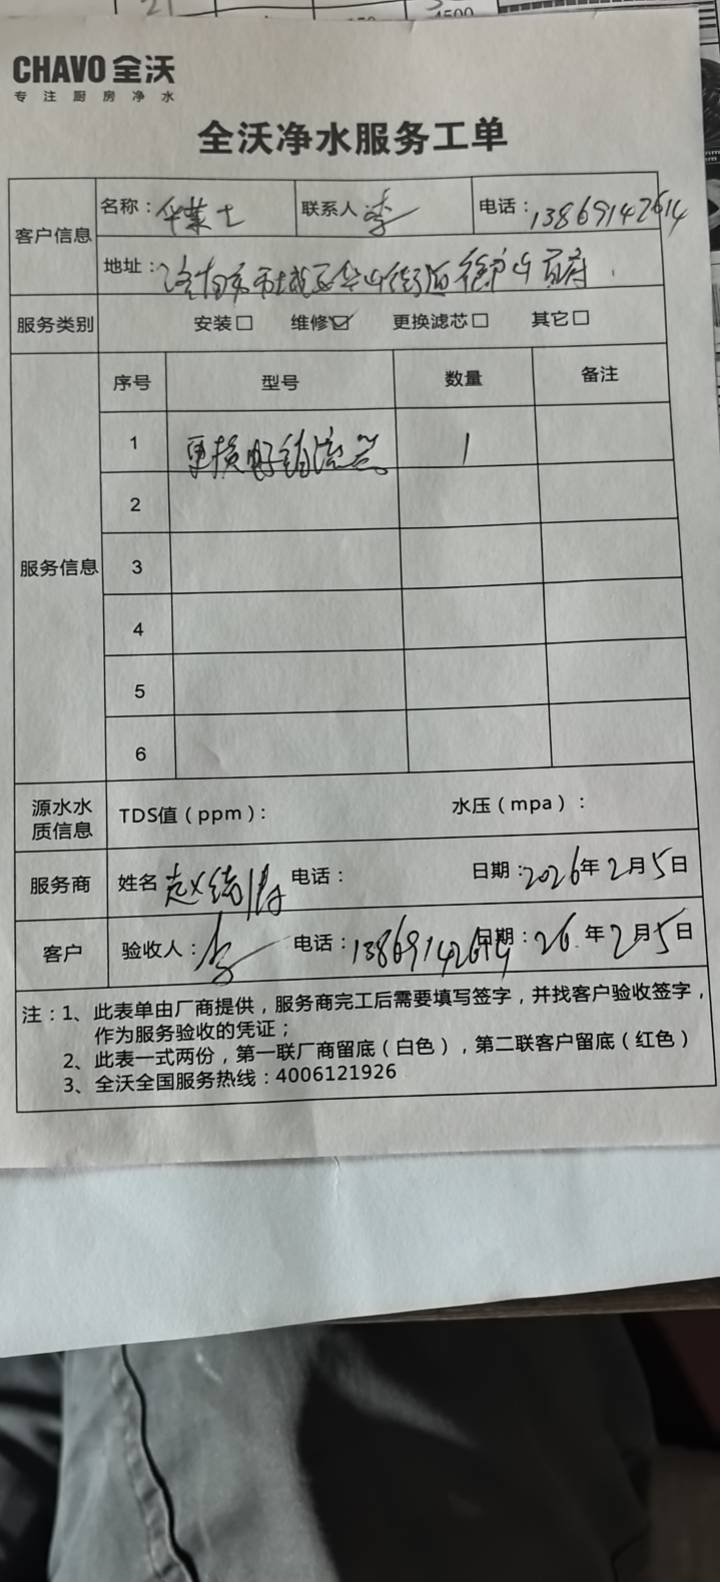 4500
CHAVO 全沃
专注厨房净水
全沃净水服务工单
客户信息
名称：华莱士
联系人 李
电话：13869142614
地址：
服务类别
安装☐ 维修☑ 更换滤芯☐ 其它☐
服务信息
序号 型号 数量 备注
1 更换 1
2
3
4
5
6
源水水质信息
TDS值（ppm）： 水压（mpa）：
服务商
姓名 赵 电话： 日期：2026年2月5日
客户
验收人：李 电话：13869142614 日期：26年2月5日
注：1、此表单由厂商提供，服务商完工后需要填写签字，并找客户验收签字，
作为服务验收的凭证；
2、此表一式两份，第一联厂商留底（白色），第二联客户留底（红色）
3、全沃全国服务热线：4006121926